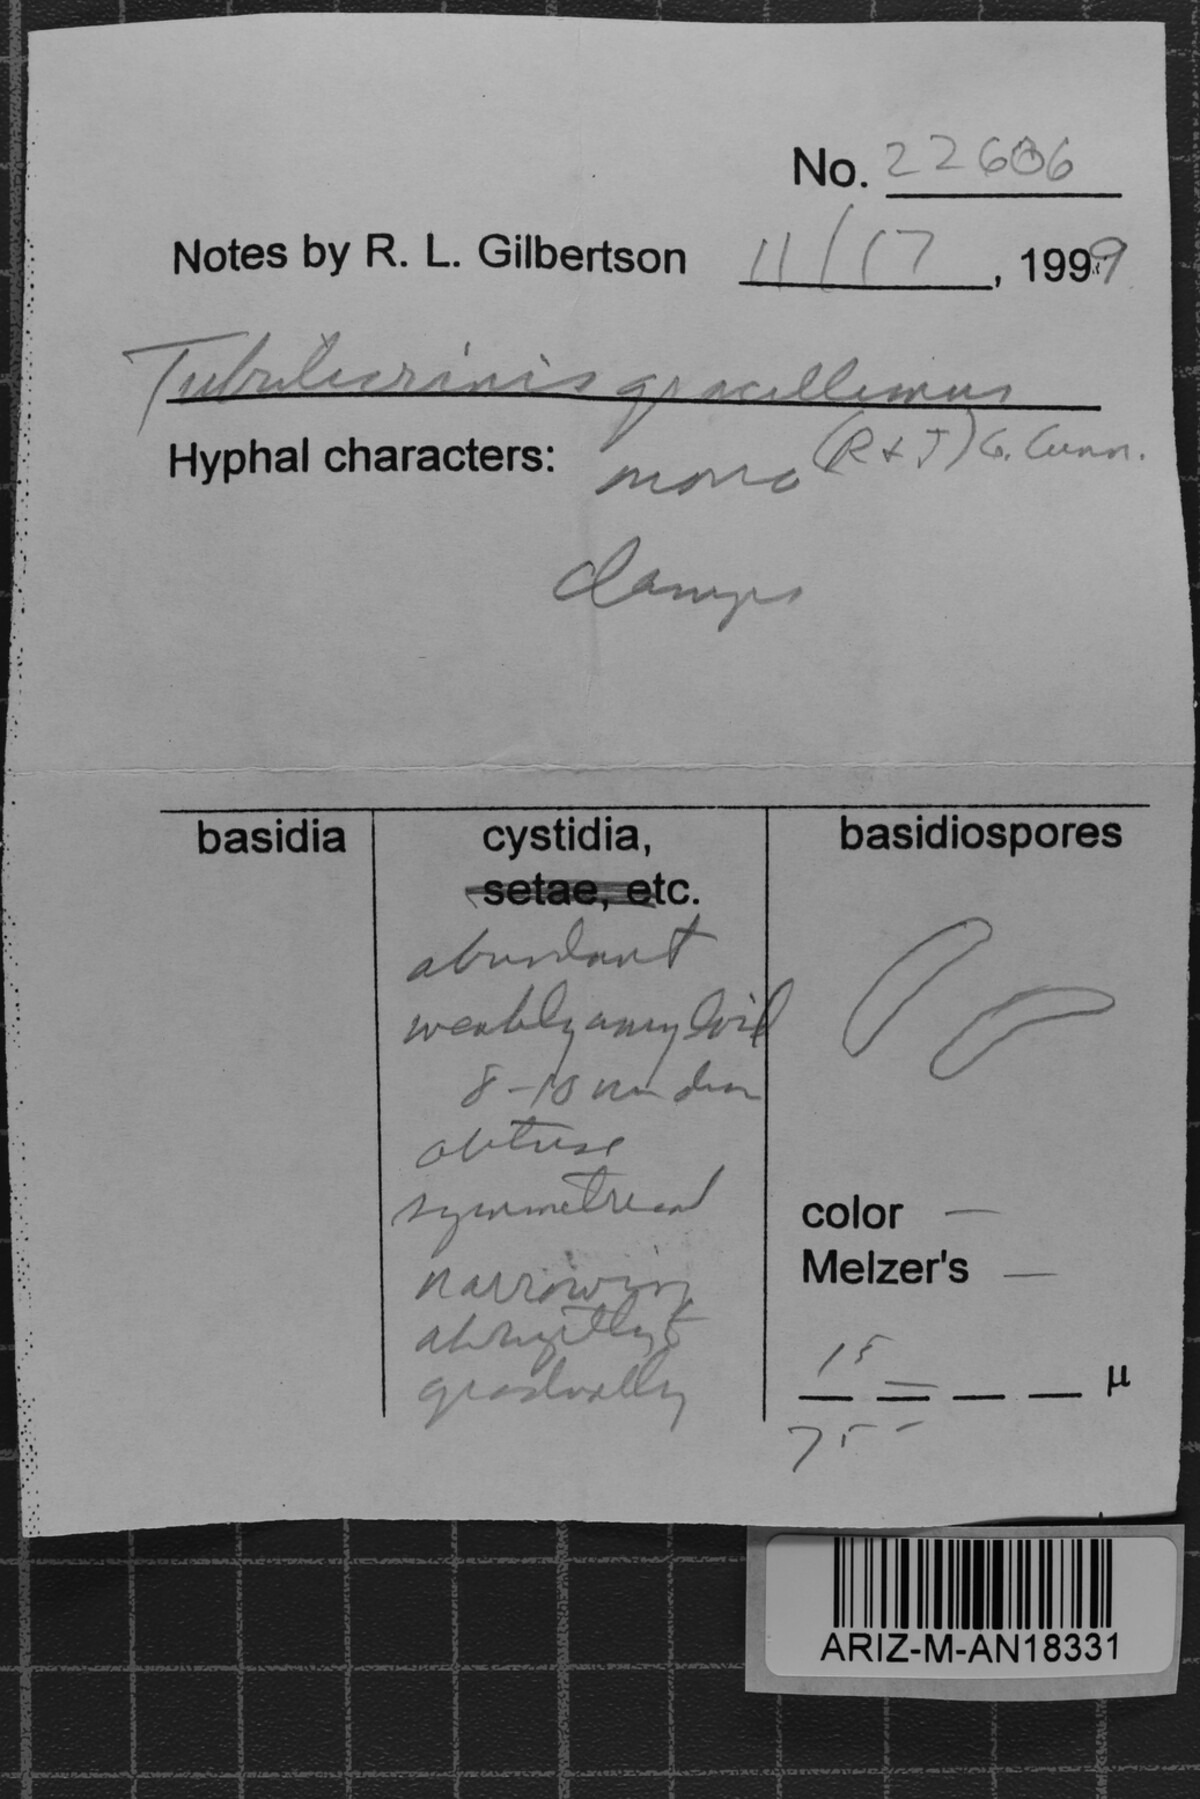 No. 22606
Notes by R. L. Gilbertson 11/17, 1999
Tubulicrinis gracillimus
(R & J) G. Cunn.
Hyphal characters: mono
clamps
basidia
cystidia,
setae, etc.
abundant
weakly amyloid
8-10 um diam
obtuse
symmetrical
narrowing
abruptly &
gradually
basidiospores
color —
Melzer's —
— — — — µ
ARIZ-M-AN18331